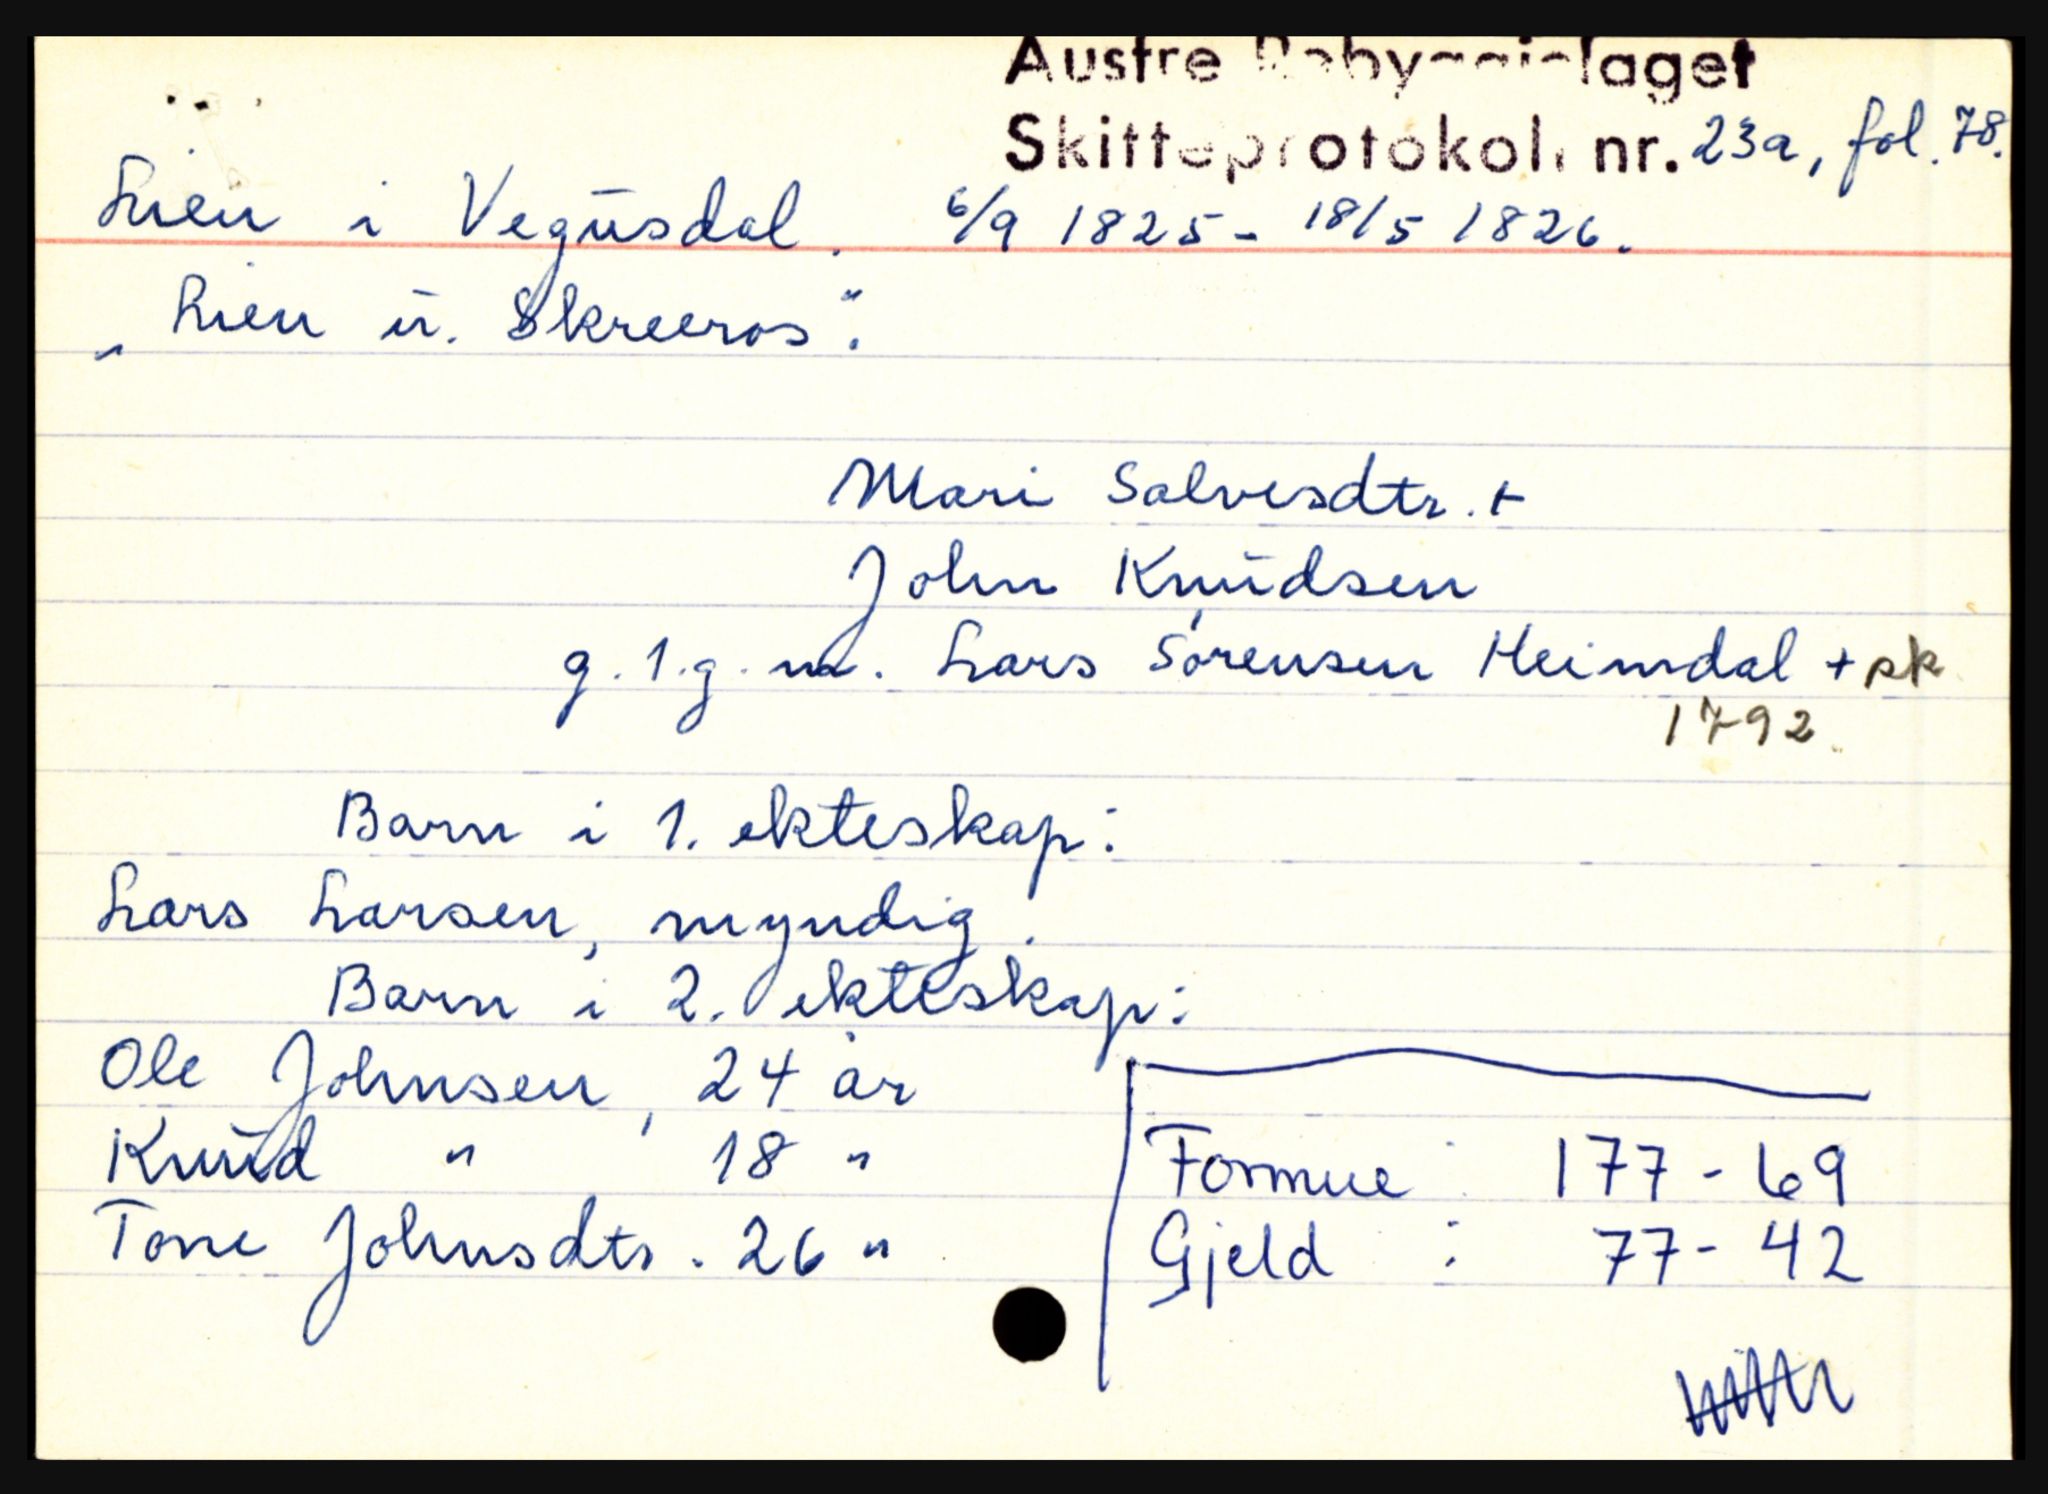 Austre Robyggjelaget
Skifteprotokoll nr. 23a, fol. 78.
Lien i Vegusdal. 6/9 1825 - 18/5 1826.
„Lien u. Skreeros".
Mari Salvesdtr. +
John Knudsen
g. 1. g. m. Lars Sørensen Heimdal + sk
1792.
Barn i 1. ekteskap:
Lars Larsen, myndig.
Barn i 2. ekteskap:
Ole Johnsen, 24 år
Knud " 18 "
Tone Johnsdtr. 26 "
Formue : 177 - 69
Gjeld : 77 - 42